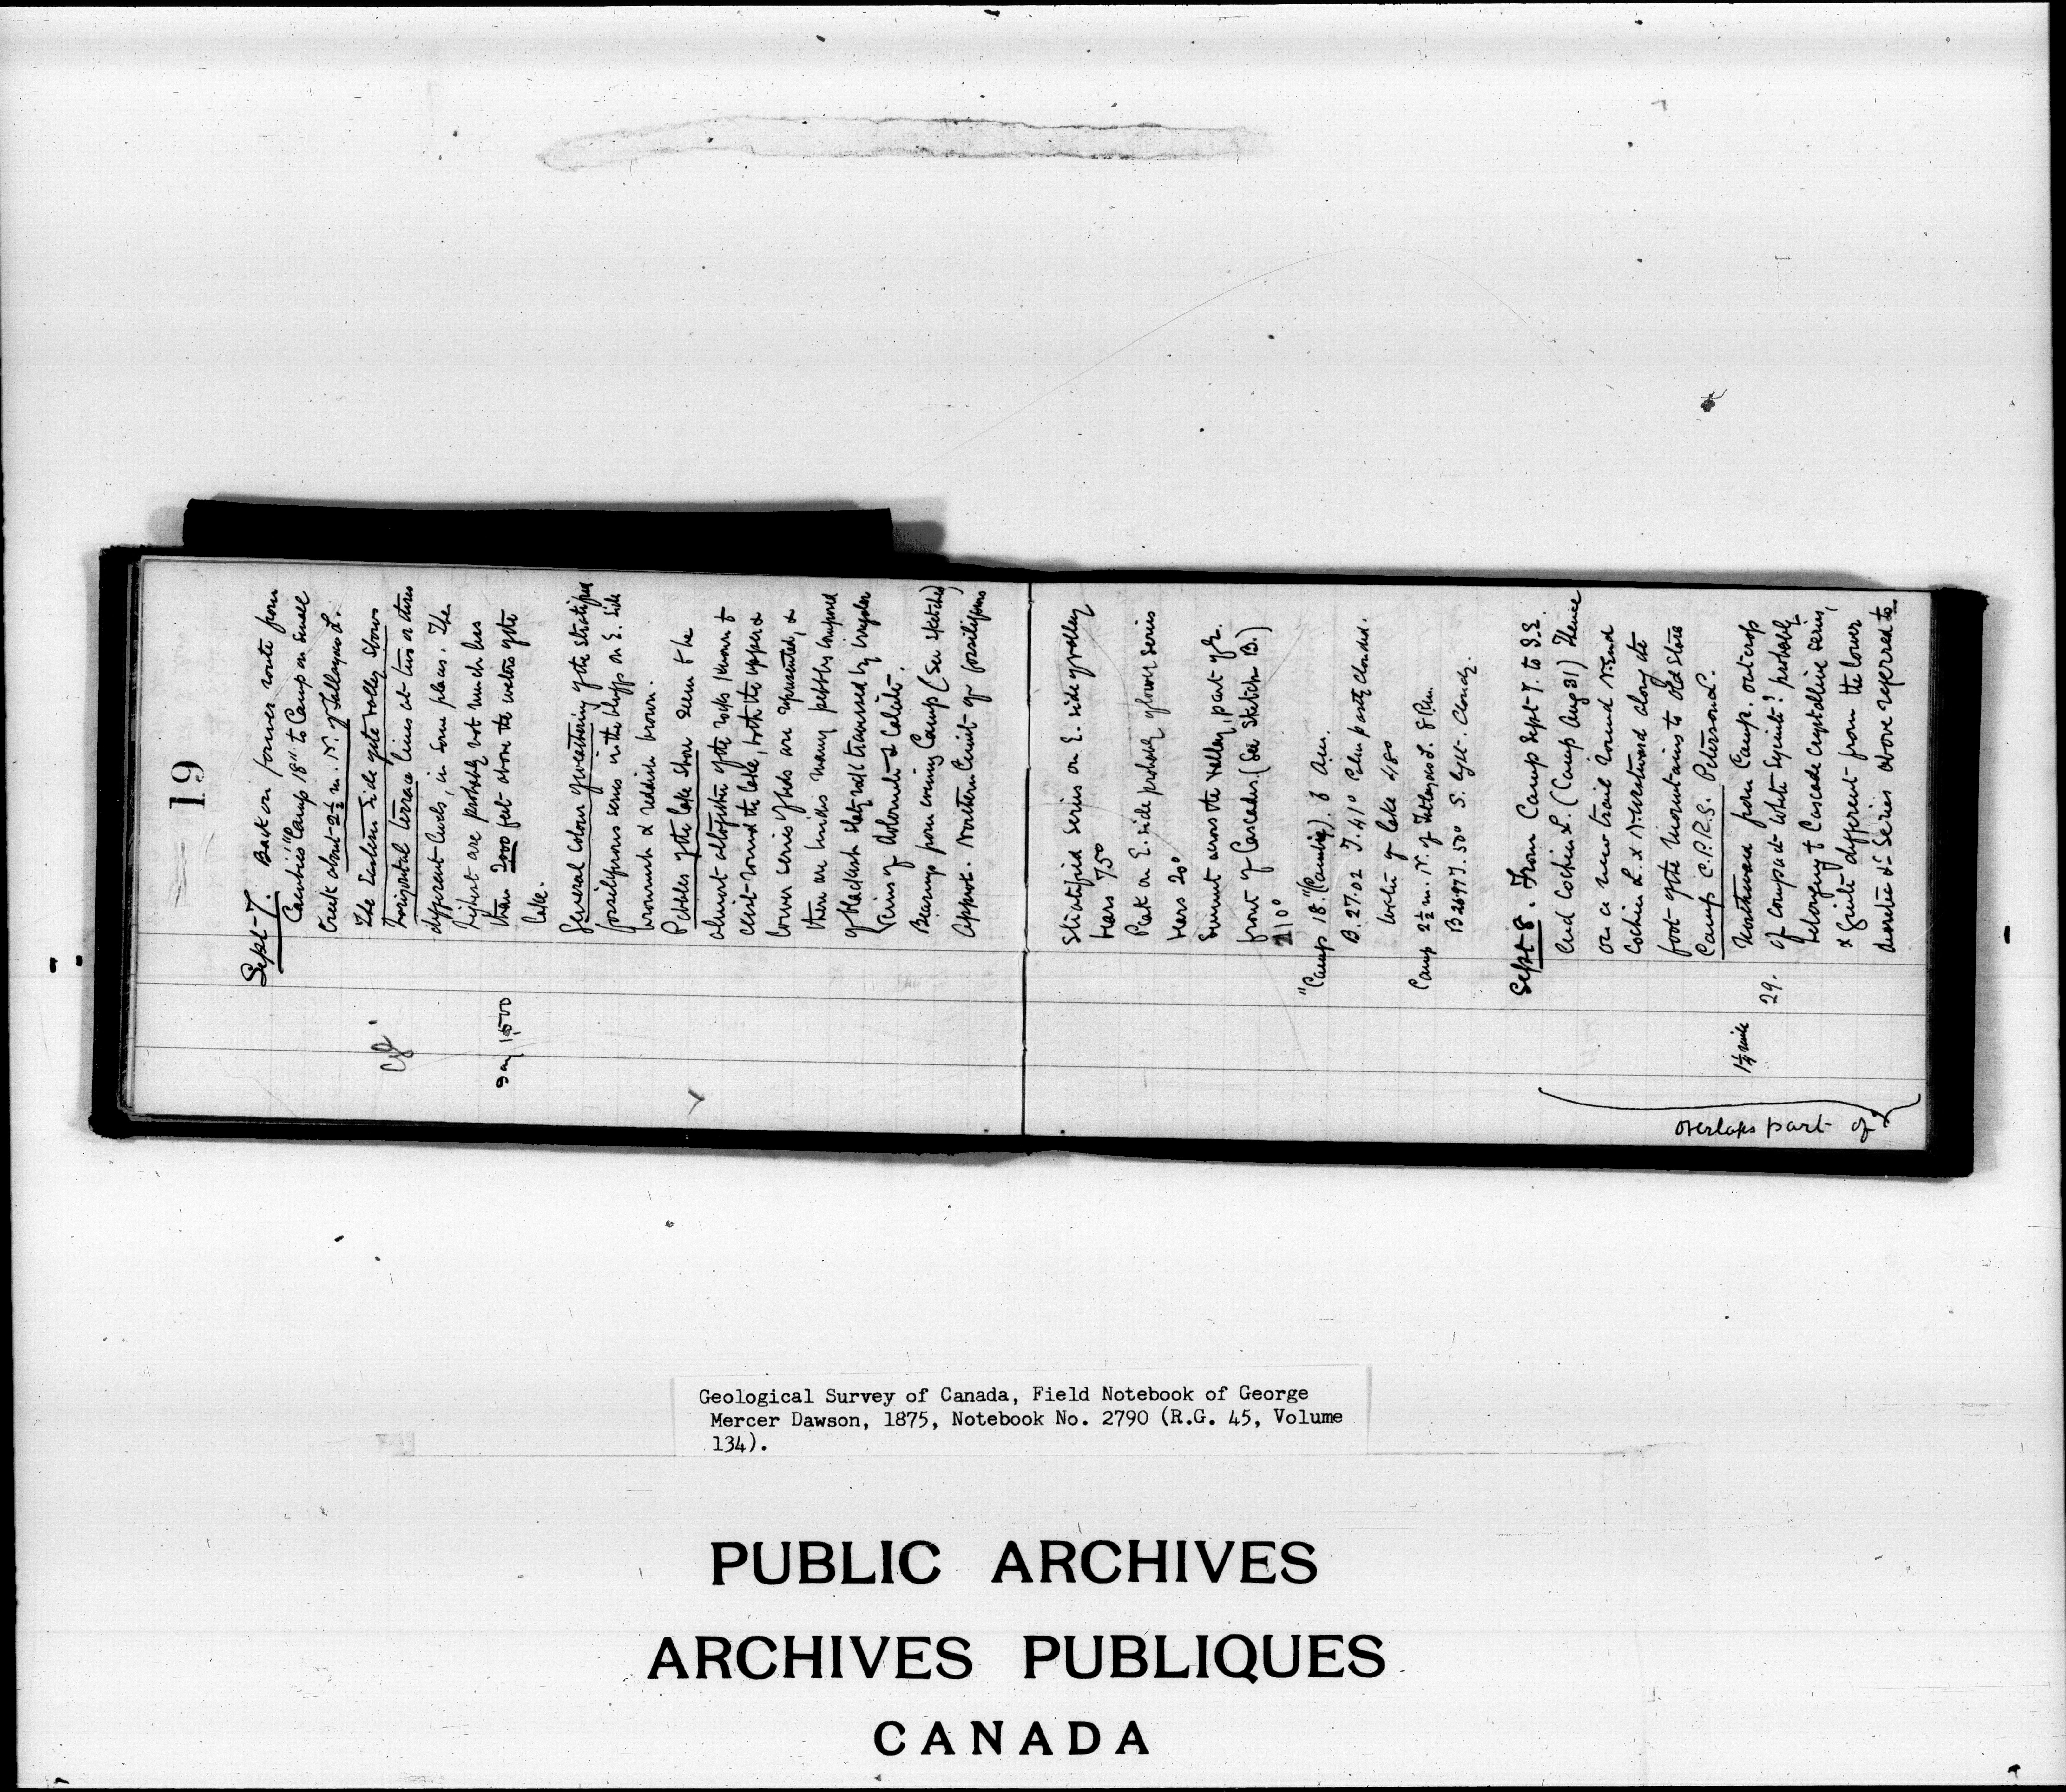 19
Sept 7. Back on former route from
Canties "Camp 18" to Camp on small
Creek about 2½ m. N. of Tatlayoco L.
The Eastern side of the valley shows
horizontal terrace lines at two or three
different levels, in some places. The
highest are probably not much less
say 1500 than 2000 feet above the waters of the
lake.
General Colour of weathering of the stratified
fossiliferous series in the bluffs on E. side
brownish & reddish brown.
Pebbles of the lake shore seem to be
almost altogether of the rocks known to
exist round the lake, both the upper &
lower series of beds are represented, &
there are besides many pebbly composed
of blackish slaty rock traversed by irregular
veins of dolomite & Calcite.
Bearings from evening Camp (See sketches)
Approx. Northern limit of fossiliferous
Stratified series on E. side of valley
bears 75°
Peak on E. side probably of lower series
bears 20°
Summit across the valley, part of gr.
front of Cascades. (See Sketch B.)
210°
"Camp 18." (Canties). 8 a.m.
B. 27.02 T. 41° Calm partly clouded.
Water of lake 48°
Camp 2½ m. N. of Tatlayoco L. 8 P.m.
B 26.97 T. 50° S. light. Cloudy.
Sept 8. From Camp Sept 7. to S.E.
End Cochin L. (Camp Aug 31) Thence
on a new trail round N. End
Cochin L. & N. Westward along the
foot of the Mountains to Old Store
Camp C.P.R.S. Peterson L.
1½ mile Northward from Camp. outcrop
29. of compact white syenite? probably
belonging to Cascade Crystalline series,
& quite different from the lower
dioritic &c Series above referred to
overlaps part of 2
Geological Survey of Canada, Field Notebook of George
Mercer Dawson, 1875, Notebook No. 2790 (R.G. 45, Volume
134).
PUBLIC ARCHIVES
ARCHIVES PUBLIQUES
CANADA